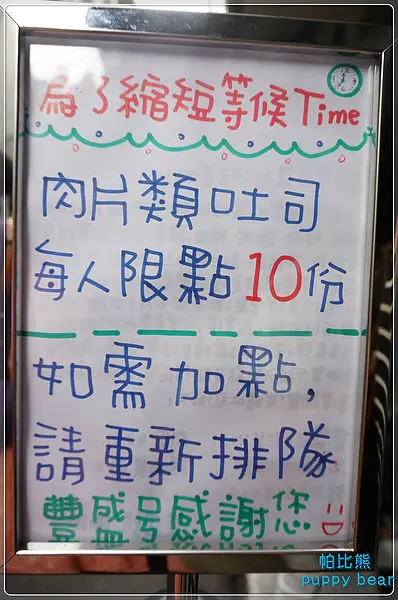 為了縮短等候Time
肉片類吐司
每人限點10份
如需加點,
請重新排隊
豐盛号感謝您
帕比熊
puppy bear